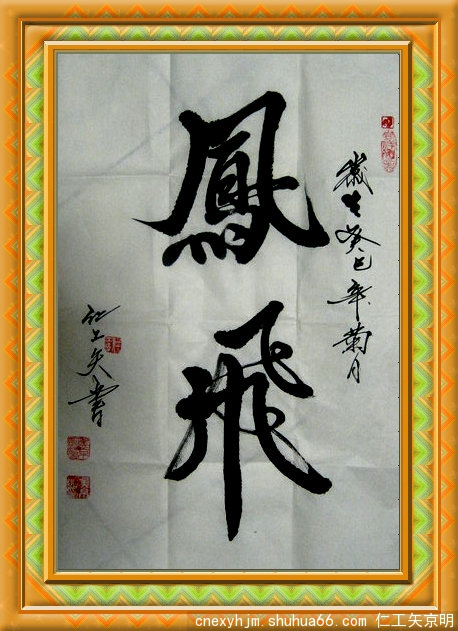 鳳飛
歲在癸巳年菊月
仁工矢書
cnexyhjm.shuhua66.com 仁工矢京明